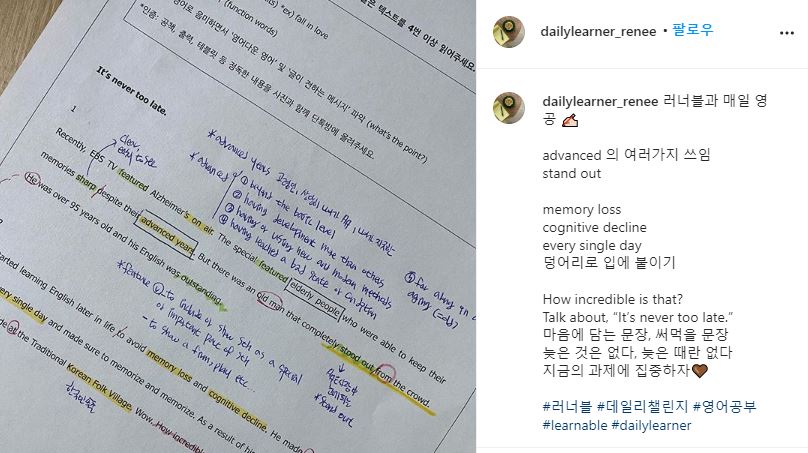 (function words) *ex) fall in love
텍스트를 4번 이상 읽어주세요.
영어로 음미하면서 '영어다운 영어' 및 '글이 전하는 메시지' 파악 (what's the point?)
*인증: 공책, 출력, 태블릿 등 정독한 내용을 사진과 함께 단톡방에 올려주세요.
It's never too late.
1
clear,
easy to see
*advanced years
*advanced
① beyond the basic level
② having development more than others
③ having or using new and modern methods
④ having reached a bad state or condition
⑤ far along in
aging (=old)
Recently, EBS TV featured Alzheimer's on air. The special featured elderly people who were able to keep their
memories sharp despite their advanced years. But there was an old man that completely stood out from the crowd.
He was over 95 years old and his English was outstanding.
*feature ① to include or show sth as a special
or important part of sth
- to show a film, play etc...
*stand out
started learning English later in life to avoid memory loss and cognitive decline. He made
every single day and made sure to memorize and memorize. As a result of his
made at the Traditional Korean Folk Village. Wow. How incredible
한국민속촌
dailylearner_renee • 팔로우
dailylearner_renee 러너블과 매일 영
공 ✍🏻
advanced 의 여러가지 쓰임
stand out
memory loss
cognitive decline
every single day
덩어리로 입에 붙이기
How incredible is that?
Talk about, “It's never too late.”
마음에 담는 문장, 써먹을 문장
늦은 것은 없다, 늦은 때란 없다
지금의 과제에 집중하자🤎
#러너블 #데일리챌린지 #영어공부
#learnable #dailylearner